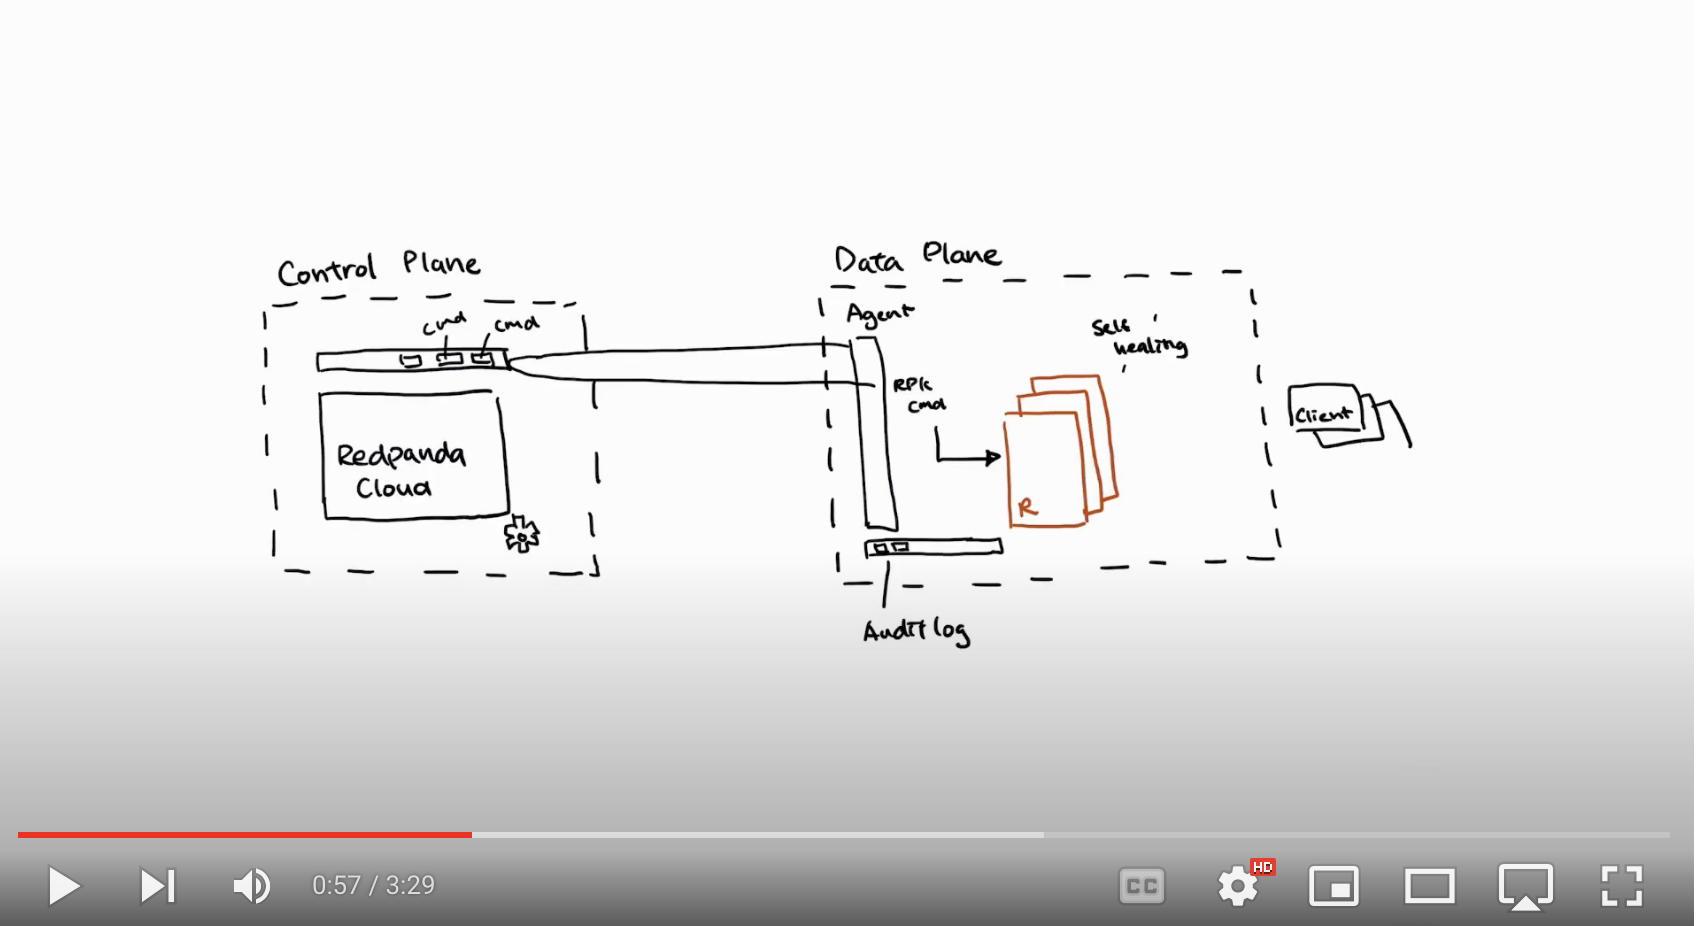 Control Plane
cmd
cmd
Redpanda
Cloud
Data Plane
Agent
RPK
cmd
R
Self
healing
Audit log
Client
0:57 / 3:29
CC
HD